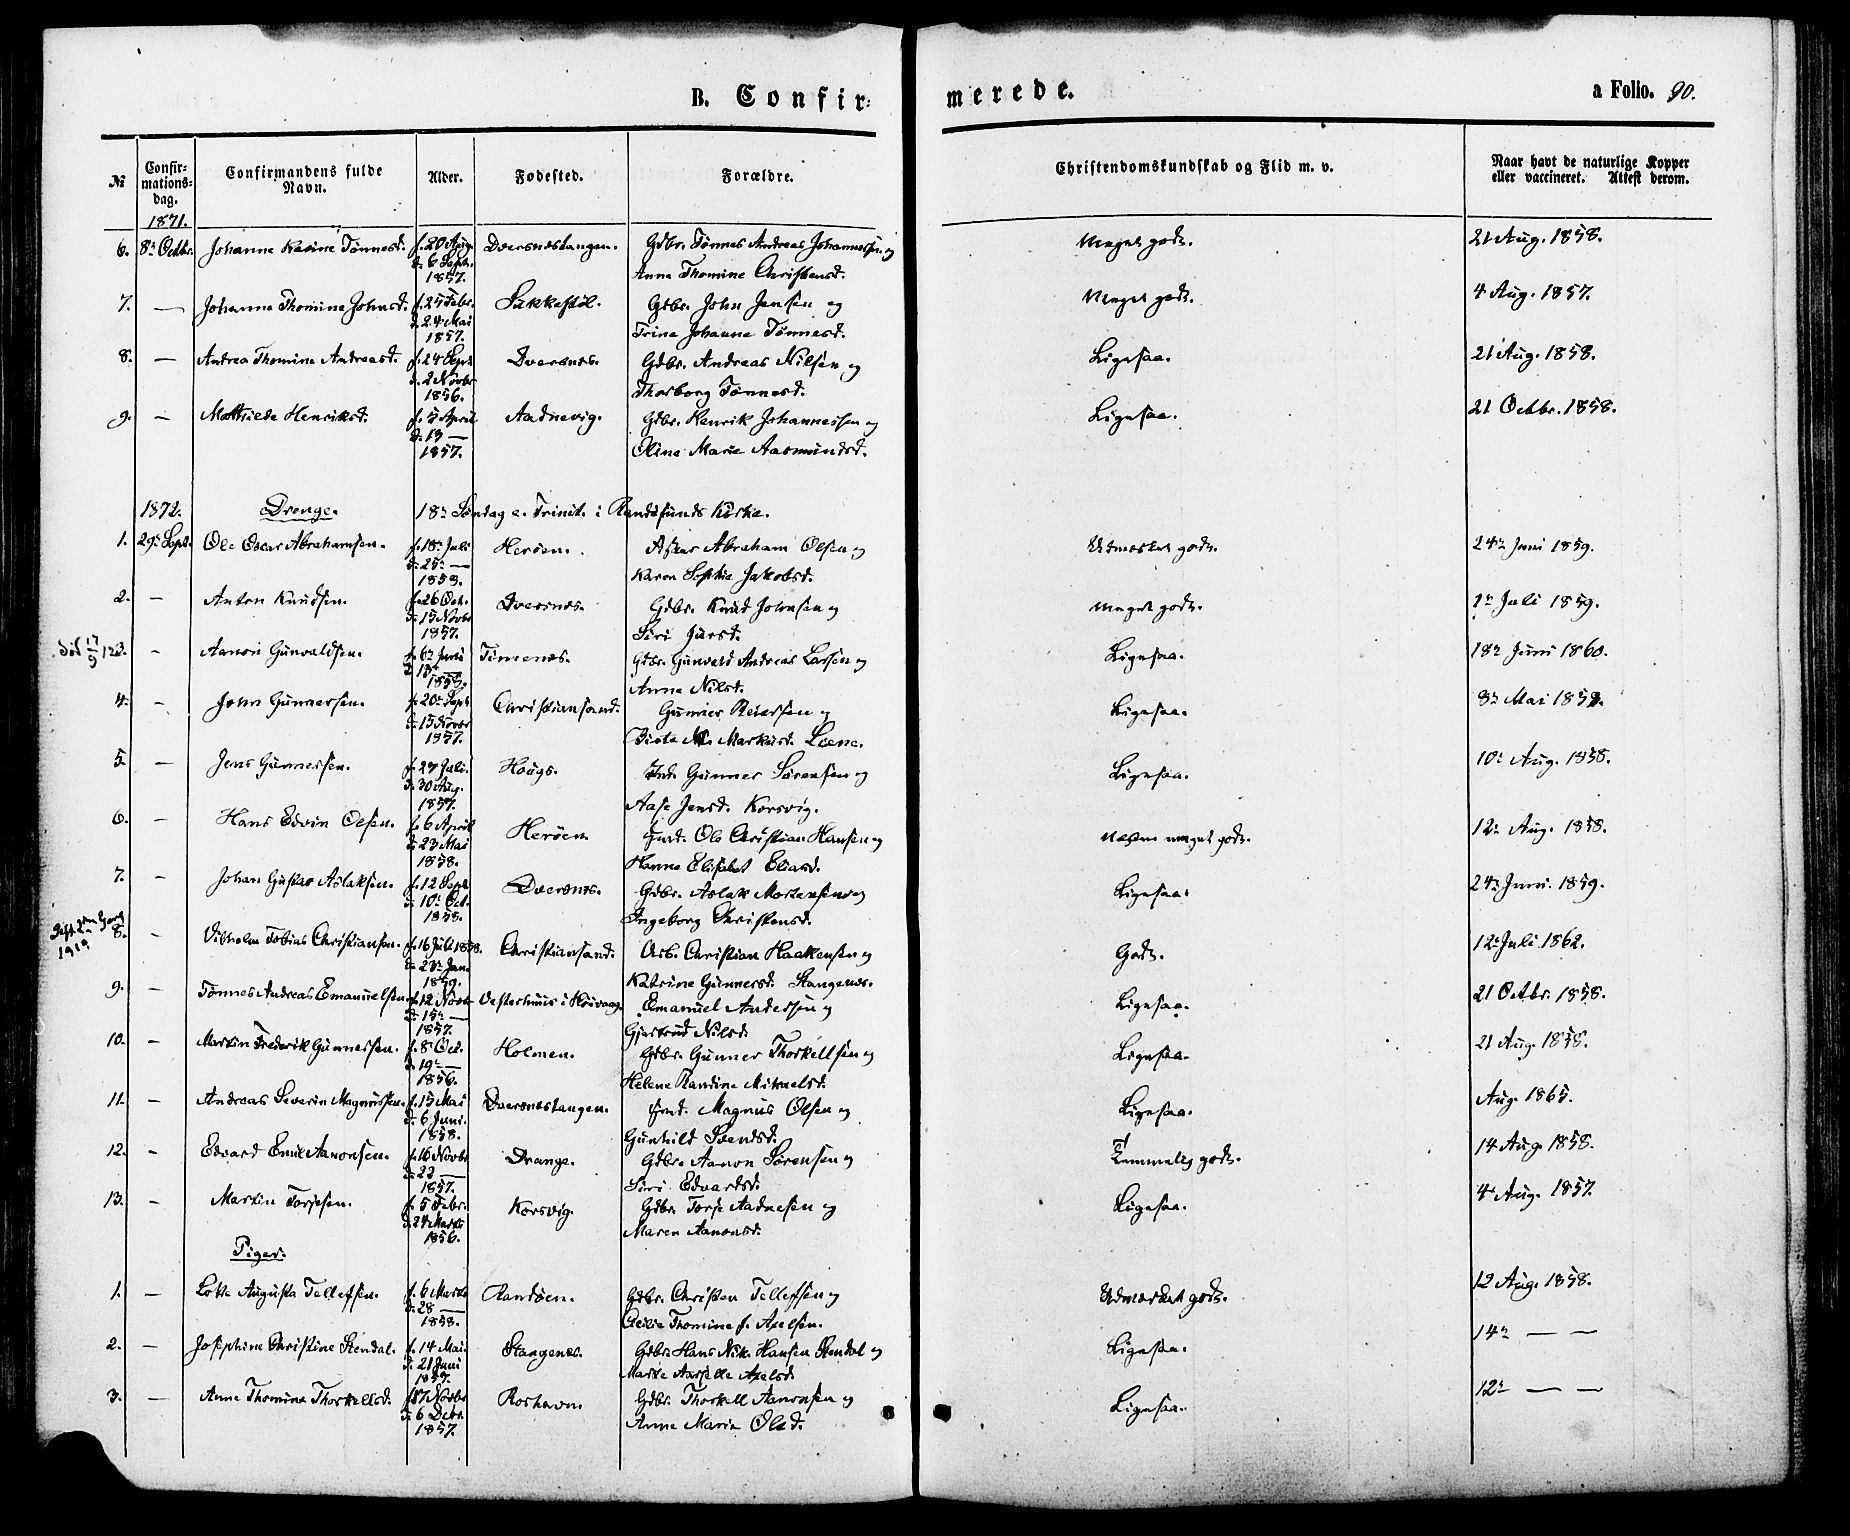 B. Confir= merede. a Folio. 90.
№ Confir-mations-dag. Confirmandens fulde Navn. Alder. Fødested. Forældre. Christendomskundskab og Flid m. v. Naar havt de naturlige Kopper eller vaccineret. Attest derom.
1871.
6. 8n Octbr. Johanne Kasine Tønnesd. f. 20 Aug. Dversnestangen. Gdbr. Tønnes Andreas Johannessen og Meget godt. 21 Aug. 1858.
d. 6 Septr. Anna Thomine Christensd.
1857.
7. — Johanne Thomine Johnsd. f. 25 Febr. Sækkestøl. Gdbr. John Jensen og Meget godt. 4 Aug. 1857.
d. 24 Mai Trine Johanne Tønnesd.
1857.
8. — Andrea Thomine Andreasd. f. 24 Sept. Dversnes. Gdbr. Andreas Nilsen og Ligesaa. 21 Aug. 1858.
d. 2 Novbr Thorborg Tønnesd.
1856.
9. — Mathilde Henriksd. f. 5 April Aadnevig. Gdbr. Henrik Johannessen og Ligesaa. 21 Octbr. 1858.
d. 13 — Oline Marie Aasmundsd.
1857.
1872. Drenge. 18n Søndag e. Trinit. i Randøsunds Kirke.
1. 29n Sept. Ole Oscar Abrahamsen. f. 18n Juli Herøen. Abraham Olsen og Udmærket godt. 24n Juni 1859.
d. 25n — Karen Sophie Jakobsd.
1858.
2. — Anton Knudsen. f. 26 Oct. Dversnes. Gdbr. Knud Johnsen og Meget godt. 1n Juli 1859.
d. 15 Novbr Siri Jursd.
1857.
død 17/9 123. - Aanon Gunvaldsen. f. 6n Juni Timenes. Gdbr. Gunvald Andreas Larsen og Ligesaa. 18n Juni 1860.
d. 13n Anna Nilsd.
1858.
4. - John Gunnersen. f. 20n Sept. Christiansand. Gunner Reiersen og Ligesaa. 8n Mai 1858.
d. 15 Novbr Markusd. Loene.
1857.
5. — Jens Gunnersen. f. 27 Juli. Hougs. Ind. Gunner Sørensen og Ligesaa. 10n Aug. 1858.
d. 30 Aug. Aase Jensd. Korsvig.
1857.
6. - Hans Edvin Olsen. f. 6 April Herøen. Ind. Ole Christian Hansen og Næsten meget godt. 12n Aug. 1858.
d. 23 Mai Hanne Elisabet Eliasd.
1858.
7. - Johan Gustav Aslaksen. f. 12 Sept. Dversnes. Gdbr. Aslak Mortensen og Ligesaa. 24n Juni. 1859.
d. 10n Oct. Ingeborg Christensd.
1858.
Gift 2den Gang 1919 8. - Vilhelm Tobias Christiansen. f. 16 Juli 1858. Christiansand. Arb. Christian Haakensen og Godt. 12n Juli 1862.
d. 23n Jan. Katrine Gunnersd. Stangenes.
1859.
9. - Tønnes Andreas Emanuelsen. f. 12 Novbr Vesterhuus i Høivaag. Emanuel Andersen og Ligesaa. 21 Octbr. 1858.
d. 15n — Gjertrud Nilsd.
1857.
10. - Martin Frederik Gunnersen. f. 8n Oct. Holmen. Gdbr. Gunner Thorkellsen og Ligesaa. 21 Aug. 1858.
d. 19n — Helene Randine Mikaelsd.
1856.
11. - Andreas Severin Magnussen. f. 15 Mai Dversnestangen. Ind. Magnus Olsen og Ligesaa. Aug. 1865.
d. 6 Juni. Gunhild Svendsd.
1858.
12. - Edvard Emil Aanonsen. f. 16 Novbr Drange. Gdbr. Aanon Sørensen og Temmelig godt. 14 Aug. 1858.
d. 22 — Siri Edvardsd.
1857.
13. - Martin Torjesen. f. 5 Febr. Korsvig. Gdbr. Torje Aadnesen og Ligesaa. 4 Aug. 1857.
d. 24 Marts Maren Aanonsd.
1856.
Piger.
1. — Lotte Augusta Tellefsen. f. 6 Marts Randøen. Gdbr. Christen Tellefsen og Udmærket godt. 12 Aug. 1858.
d. 28 — Cecilie Thomine f. Axelsen.
1858.
2. — Josephine Christine Stendal. f. 14 Mai. Stangenes. Gdbr. Hans Nik. Hansen Stendal og Ligesaa. 14n — —
d. 21 Juni Axelsd.
1857.
3. — Anne Thomine Thorkellsd. f. 17 Novbr Roshavn. Gdbr. Thorkell Aanonsen og Ligesaa. 12n — —
d. 6 Debr. Anne Marie Olsd.
1857.